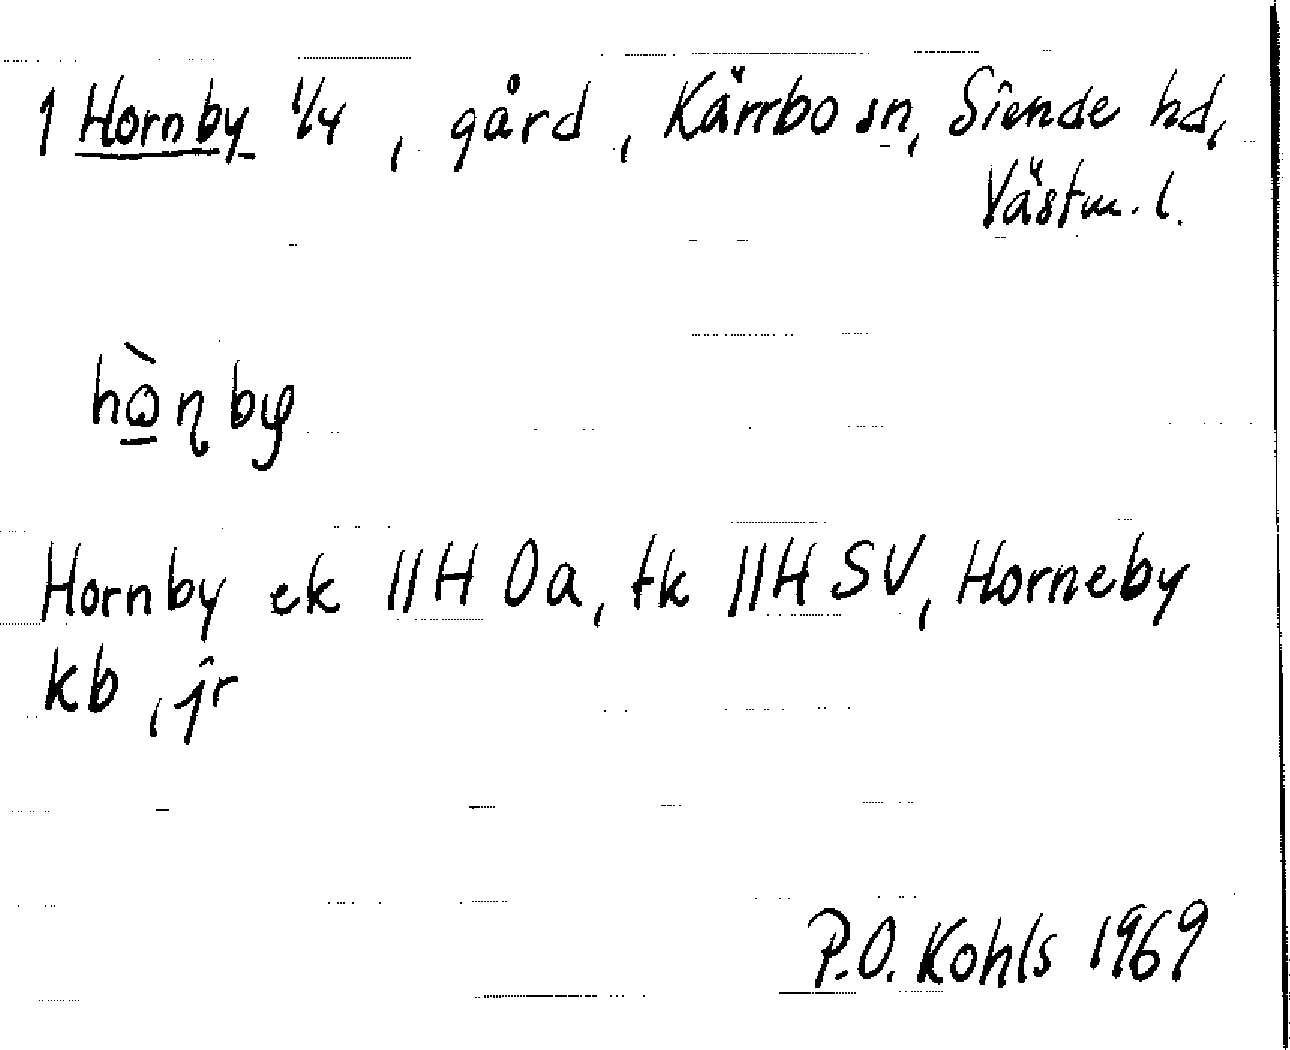 1 Hornby 1/4, gård, Kärrbo sn, Siende hd,
Västm. l.
hɷ̲̀ɳby
Hornby ek 11H 0a, tk 11H SV, Horneby
kb, jr
P.O. Kohls 1969